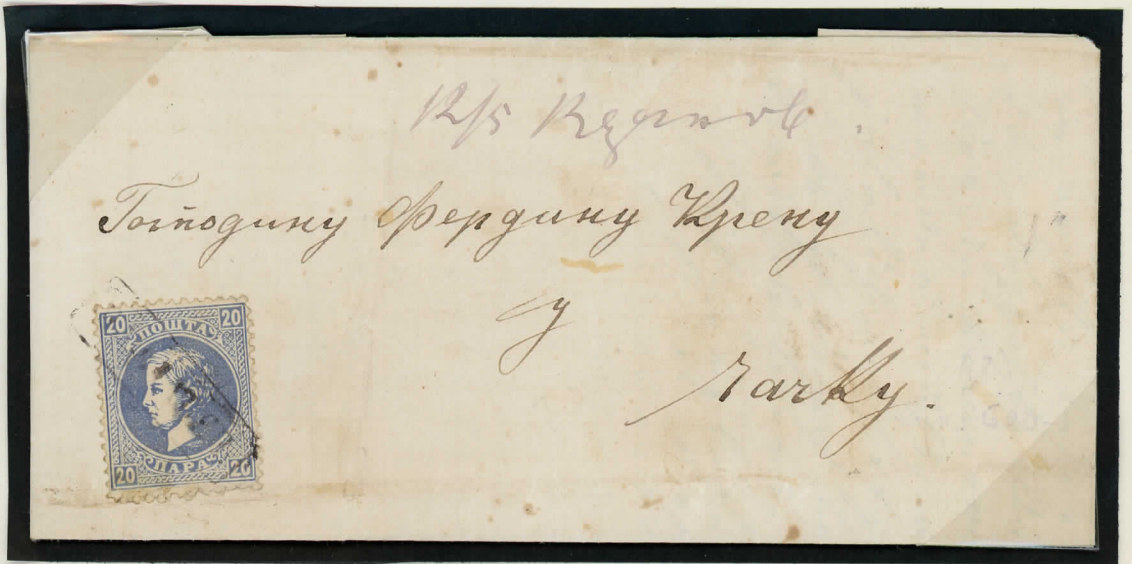 Господину Фердину Крену
у
Чачку.
20 ПОШТА 20
20 ПАРА 20